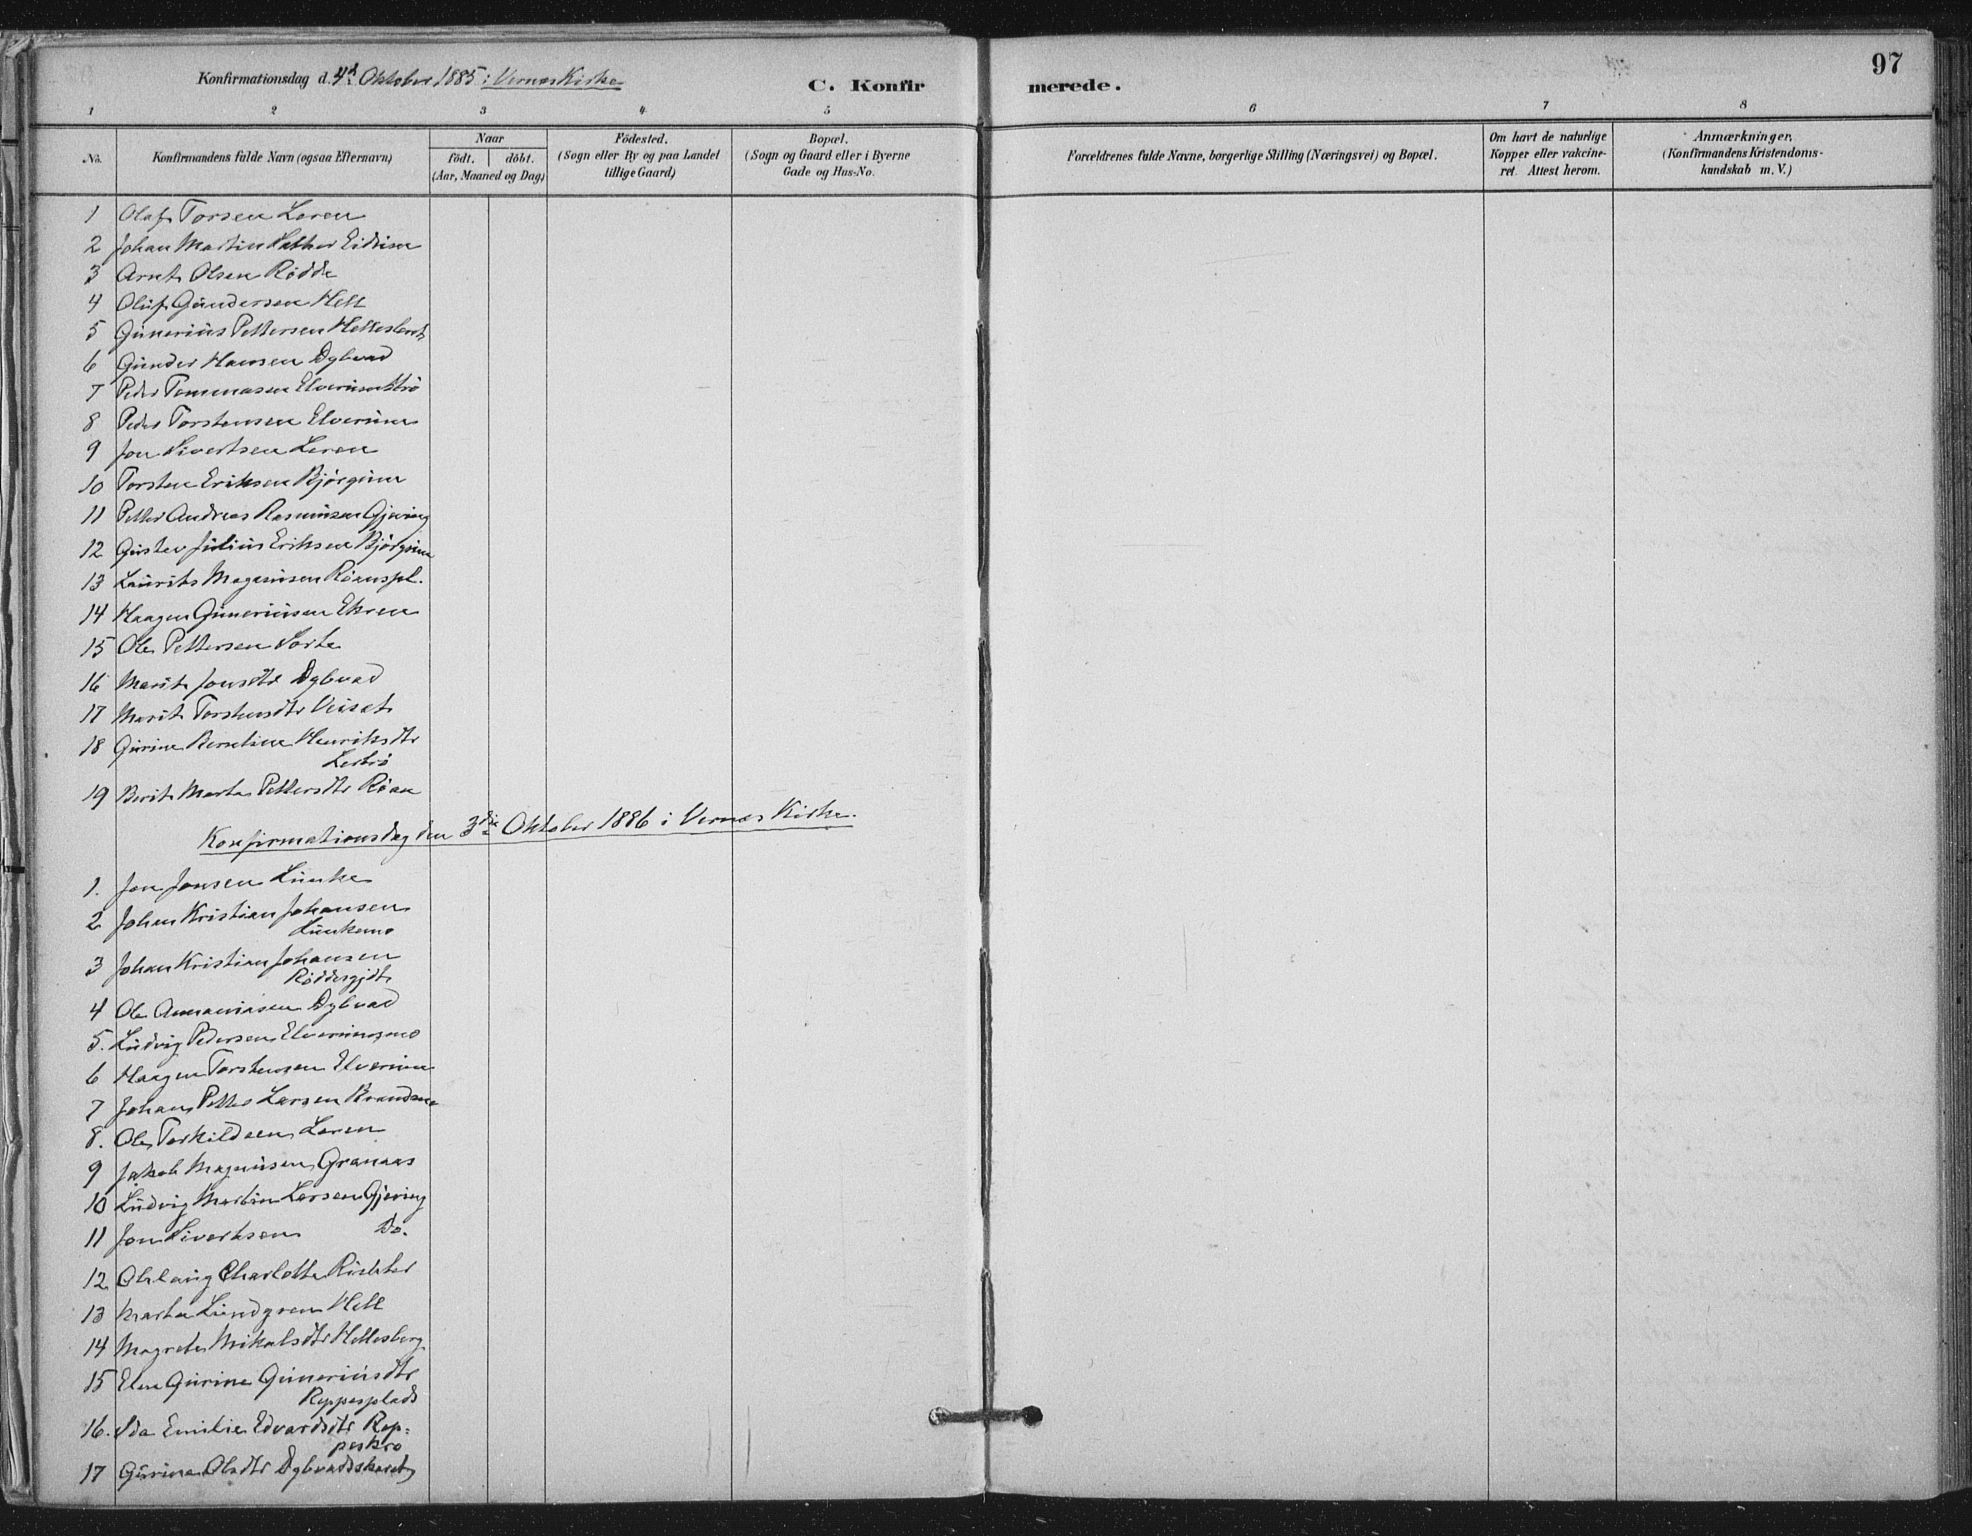 97
Konfirmationsdag d. 4d Oktober 1885 i Vernes Kirke
C. Konfirmerede.
1 2 3 4 5 6 7 8
No.
Konfirmandens fulde Navn (ogsaa Efternavn)
Naar
födt. döbt.
(Aar, Maaned og Dag)
Födested.
(Sogn eller By og paa Landet
tillige Gaard)
Bopæl.
(Sogn og Gaard eller i Byerne
Gade og Hus-No.
Forældrenes fulde Navne, borgerlige Stilling (Næringsvei) og Bopæl.
Om havt de naturlige
Kopper eller vakcine-
ret. Attest herom.
Anmærkninger.
(Konfirmandens Kristendoms-
kundskab m. V.)
1 Olaf Torsen Leren
2 Johan Martin Eidsum
3 Arnt Olsen Rödde
4 Oluf Gundersen Hell
5 Gunerius Pettersen
6 Gunder Hansen Dybvad
7 Peder Tommasen
8 Peder Torstensen Elverum
9 Jon Sivertsen Leren
10 Torsten Eriksen Björgum
11 Petter Andreas Rasmusen Gjeving
12 Gustav Julius Eriksen Björgum
13 Laurits Magnusen Röanspl.
14 Haagen Guneriusen Ekren
15 Ole Pettersen Sorte
16 Marit Jonsdtr Dybvad
17 Marit Torstensdtr Veiset
18 Gurine Berntine Henriksdtr
Lertrö
19 Berit Marta Pettersdtr Röan
Konfirmationsdag den 3die Oktober 1886 i Vernes Kirke.
1. Jon Jonsen Lunke
2 Johan Kristian Johansen
Lunkemo
3 Johan Kristian Johansen
4 Ole Annaniasen Dybvad
5. Ludvig Pedersen Elverumsmo
6 Haagen Torstensen Elverum
7 Johan Petter Larsen Brandsmo
8. Ole Torkildsen Leren
9 Jakob Magnusen Granaas
10 Ludvig Martin Larsen Gjeving
11 Jon Sivertsen Do.
12 Aslaug Charlotte Richter
13 Marta Lundgren Hell
14 Magrete Mikalsdtr Hellesberg
15 Elen Gurine Guneriusdtr
Reppesplads
16. Ida Emilie Edvardsdtr Rep-
peskro
17 Gurine Olsdtr